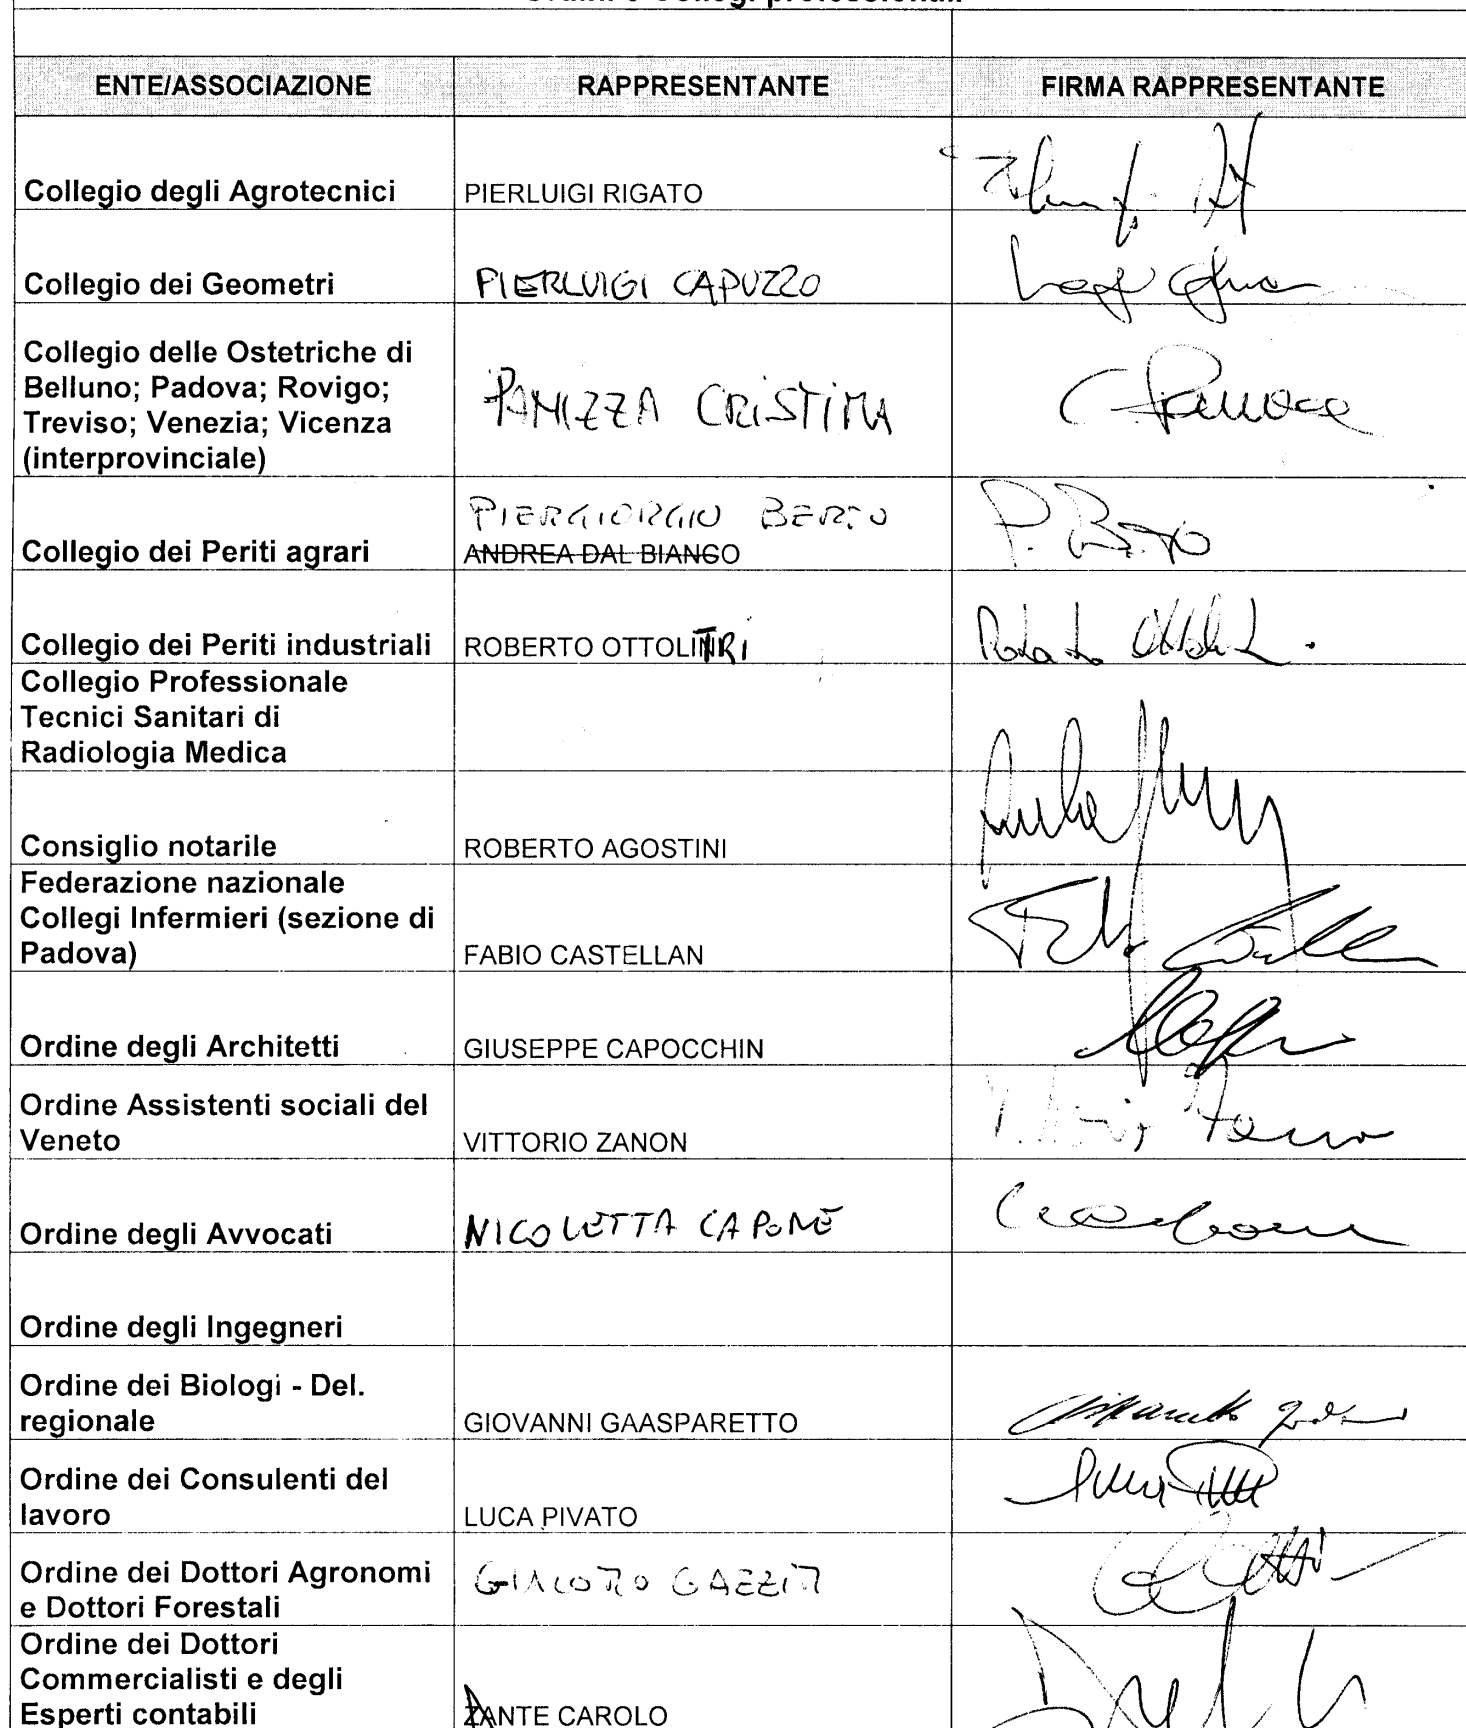 ENTE/ASSOCIAZIONE RAPPRESENTANTE FIRMA RAPPRESENTANTE
Collegio degli Agrotecnici PIERLUIGI RIGATO
Collegio dei Geometri PIERLUIGI CAPUZZO
Collegio delle Ostetriche di
Belluno; Padova; Rovigo;
Treviso; Venezia; Vicenza
(interprovinciale)
PANIZZA CRISTINA
PIERGIORGIO BERTO
Collegio dei Periti agrari ANDREA DAL BIANCO
P. Berto
Collegio dei Periti industriali ROBERTO OTTOLITRI
Collegio Professionale
Tecnici Sanitari di
Radiologia Medica
Consiglio notarile ROBERTO AGOSTINI
Federazione nazionale
Collegi Infermieri (sezione di
Padova) FABIO CASTELLAN
Ordine degli Architetti GIUSEPPE CAPOCCHIN
Ordine Assistenti sociali del
Veneto VITTORIO ZANON
Ordine degli Avvocati NICOLETTA CAPONE
Ordine degli Ingegneri
Ordine dei Biologi - Del.
regionale GIOVANNI GAASPARETTO
Ordine dei Consulenti del
lavoro LUCA PIVATO
Ordine dei Dottori Agronomi
e Dottori Forestali
GIACOMO
Ordine dei Dottori
Commercialisti e degli
Esperti contabili DANTE CAROLO